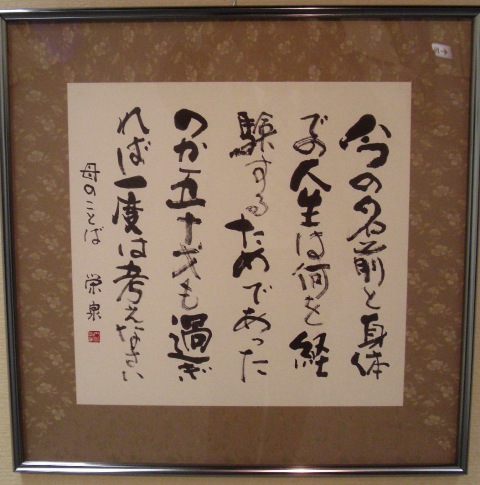 今の名前と身体
での人生は何を経
験するためであった
のか五十才も過ぎ
れば一度は考えなさい
母のことば 栄泉